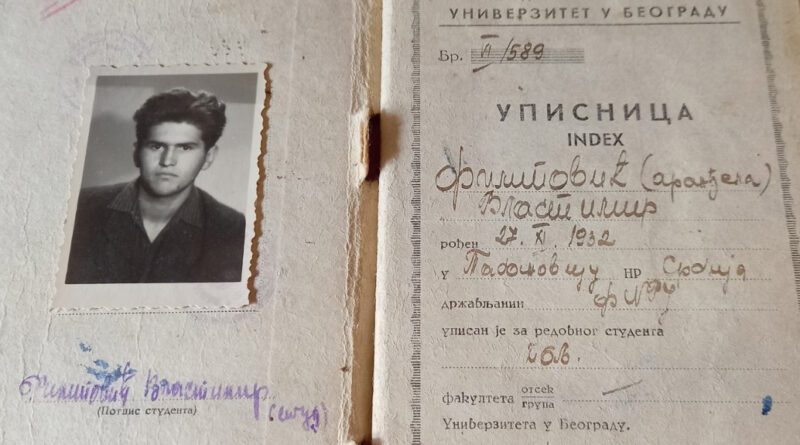 УНИВЕРЗИТЕТ У БЕОГРАДУ
Бр. XI/589
УПИСНИЦА
INDEX
Филиповић (Аранђела)
Властимир
рођен 27. XI. 1932
у НР Србија
држављанин ФНРЈ
уписан је за редовног студента
факултета отсек
група
Универзитета у Београду.
Филиповић Властимир
(Потпис студента)